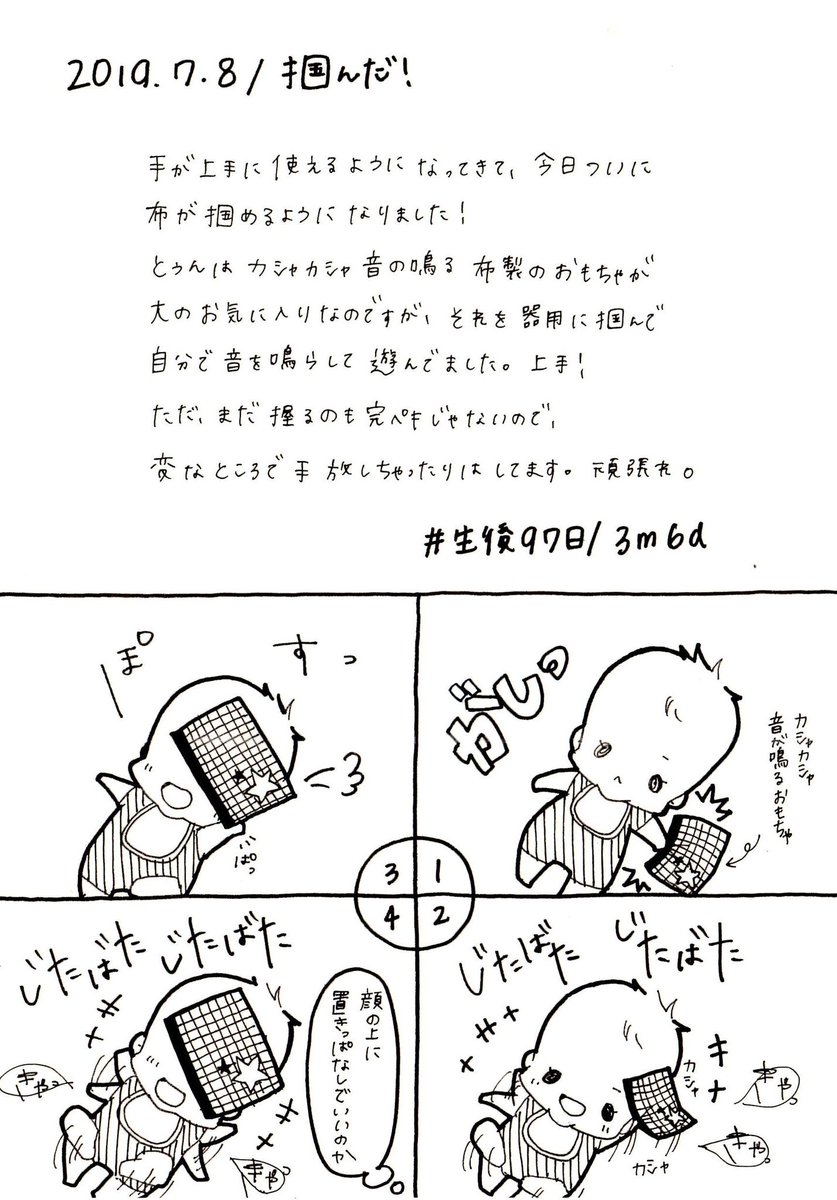 2019.7.8/掴んだ!
手が上手に使えるようになってきて、今日ついに
布が掴めるようになりました!
とぅんはカシャカシャ音の鳴る布製のおもちゃが
大のお気に入りなのですが、それを器用に掴んで
自分で音を鳴らして遊んでました。上手!
ただ、まだ握るのも完ペキじゃないので、
変なところで手放しちゃったりはしてます。頑張れ。
#生後97日/3m6d
がしっ
カシャカシャ
音が鳴るおもちゃ
1
じたばた
じたばた
キャ
カシャ
カシャ
きゃっ
きゃっ
2
すっ
ぽ
ぱっ
3
じたばた
じたばた
顔の上に
置きっぱなしでいいのか
きゃっ
きゃっ
4